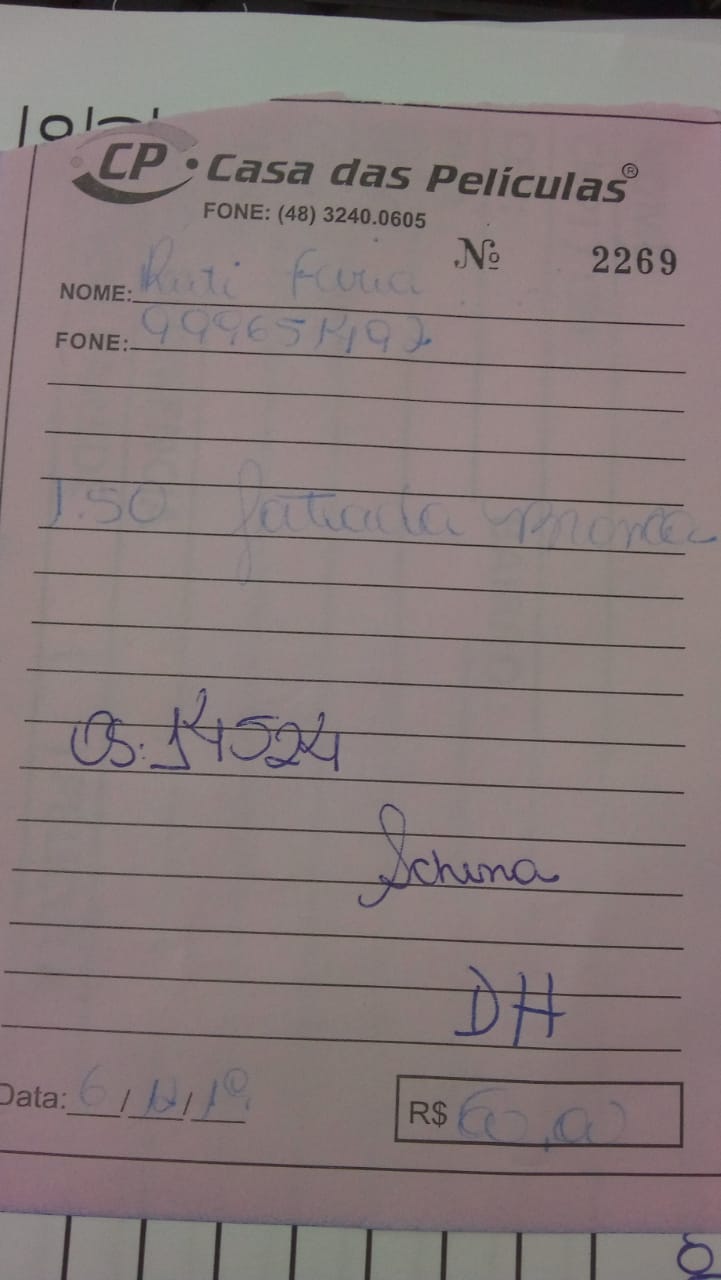 CP • Casa das Películas®
FONE: (48) 3240.0605
Nº 2269
NOME: Ruti Faria
FONE: 999651492
1.50 Jateada Branca
OS: 14524
Schena
DH
Data: 6/12/19
R$ 60,00